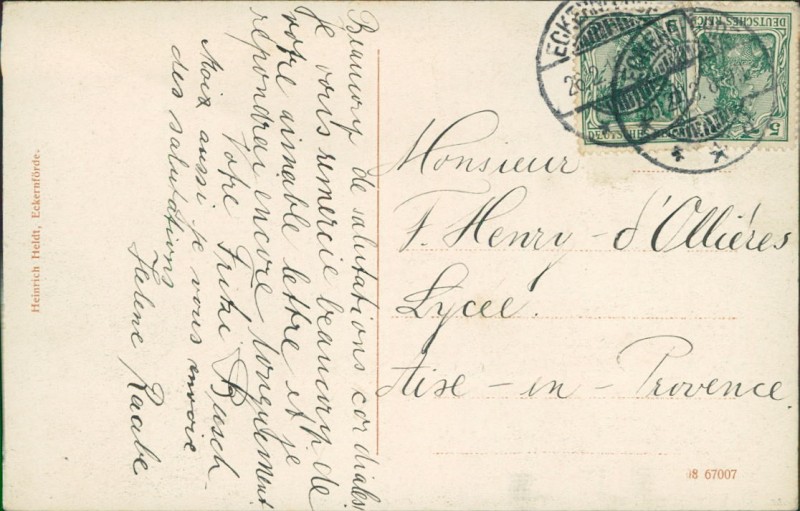 Beaucoup de salutations cordiales
Je vous remercie beaucoup de
votre aimable lettre et je
répondrai encore longuement
Votre Fritz Busch
Moix aussi je vous envoie
des salutations
Helene Raabe
Monsieur
F. Henry - d'Olliéres
Lycée.
Aixe - en - Provence.
DEUTSCHES REICH
5
DEUTSCHES REICH
ECKERNFÖRDE
Heinrich Heldt, Eckernförde.
08 67007